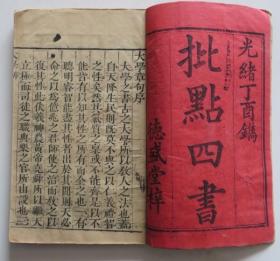 光緒丁酉鐫
批點四書
德堂梓
大學章句序
大學之書古之大學所以教人之法也蓋
自天降生民則既莫不與之以仁義禮智
之性矣然其氣質之稟或不能齊是以不
能皆有以知其性之所有而全之也一有
聰明睿智能盡其性者出於其間則天必
命之以爲億兆之君師使之治而教之以
復其性此伏羲神農黃帝堯舜所以繼天
立極而司徒之職典樂之官所由設也三